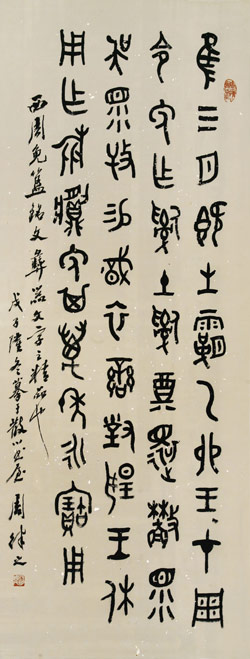 隹三月既生霸乙卯王才周
令免乍嗣土嗣奠還眾
吳眾牧易戠衣䜌對揚王休
用乍旅免其萬年永寶用
西周免簠銘文彝器文字之精品也
戊子隆冬摹于散心居周之